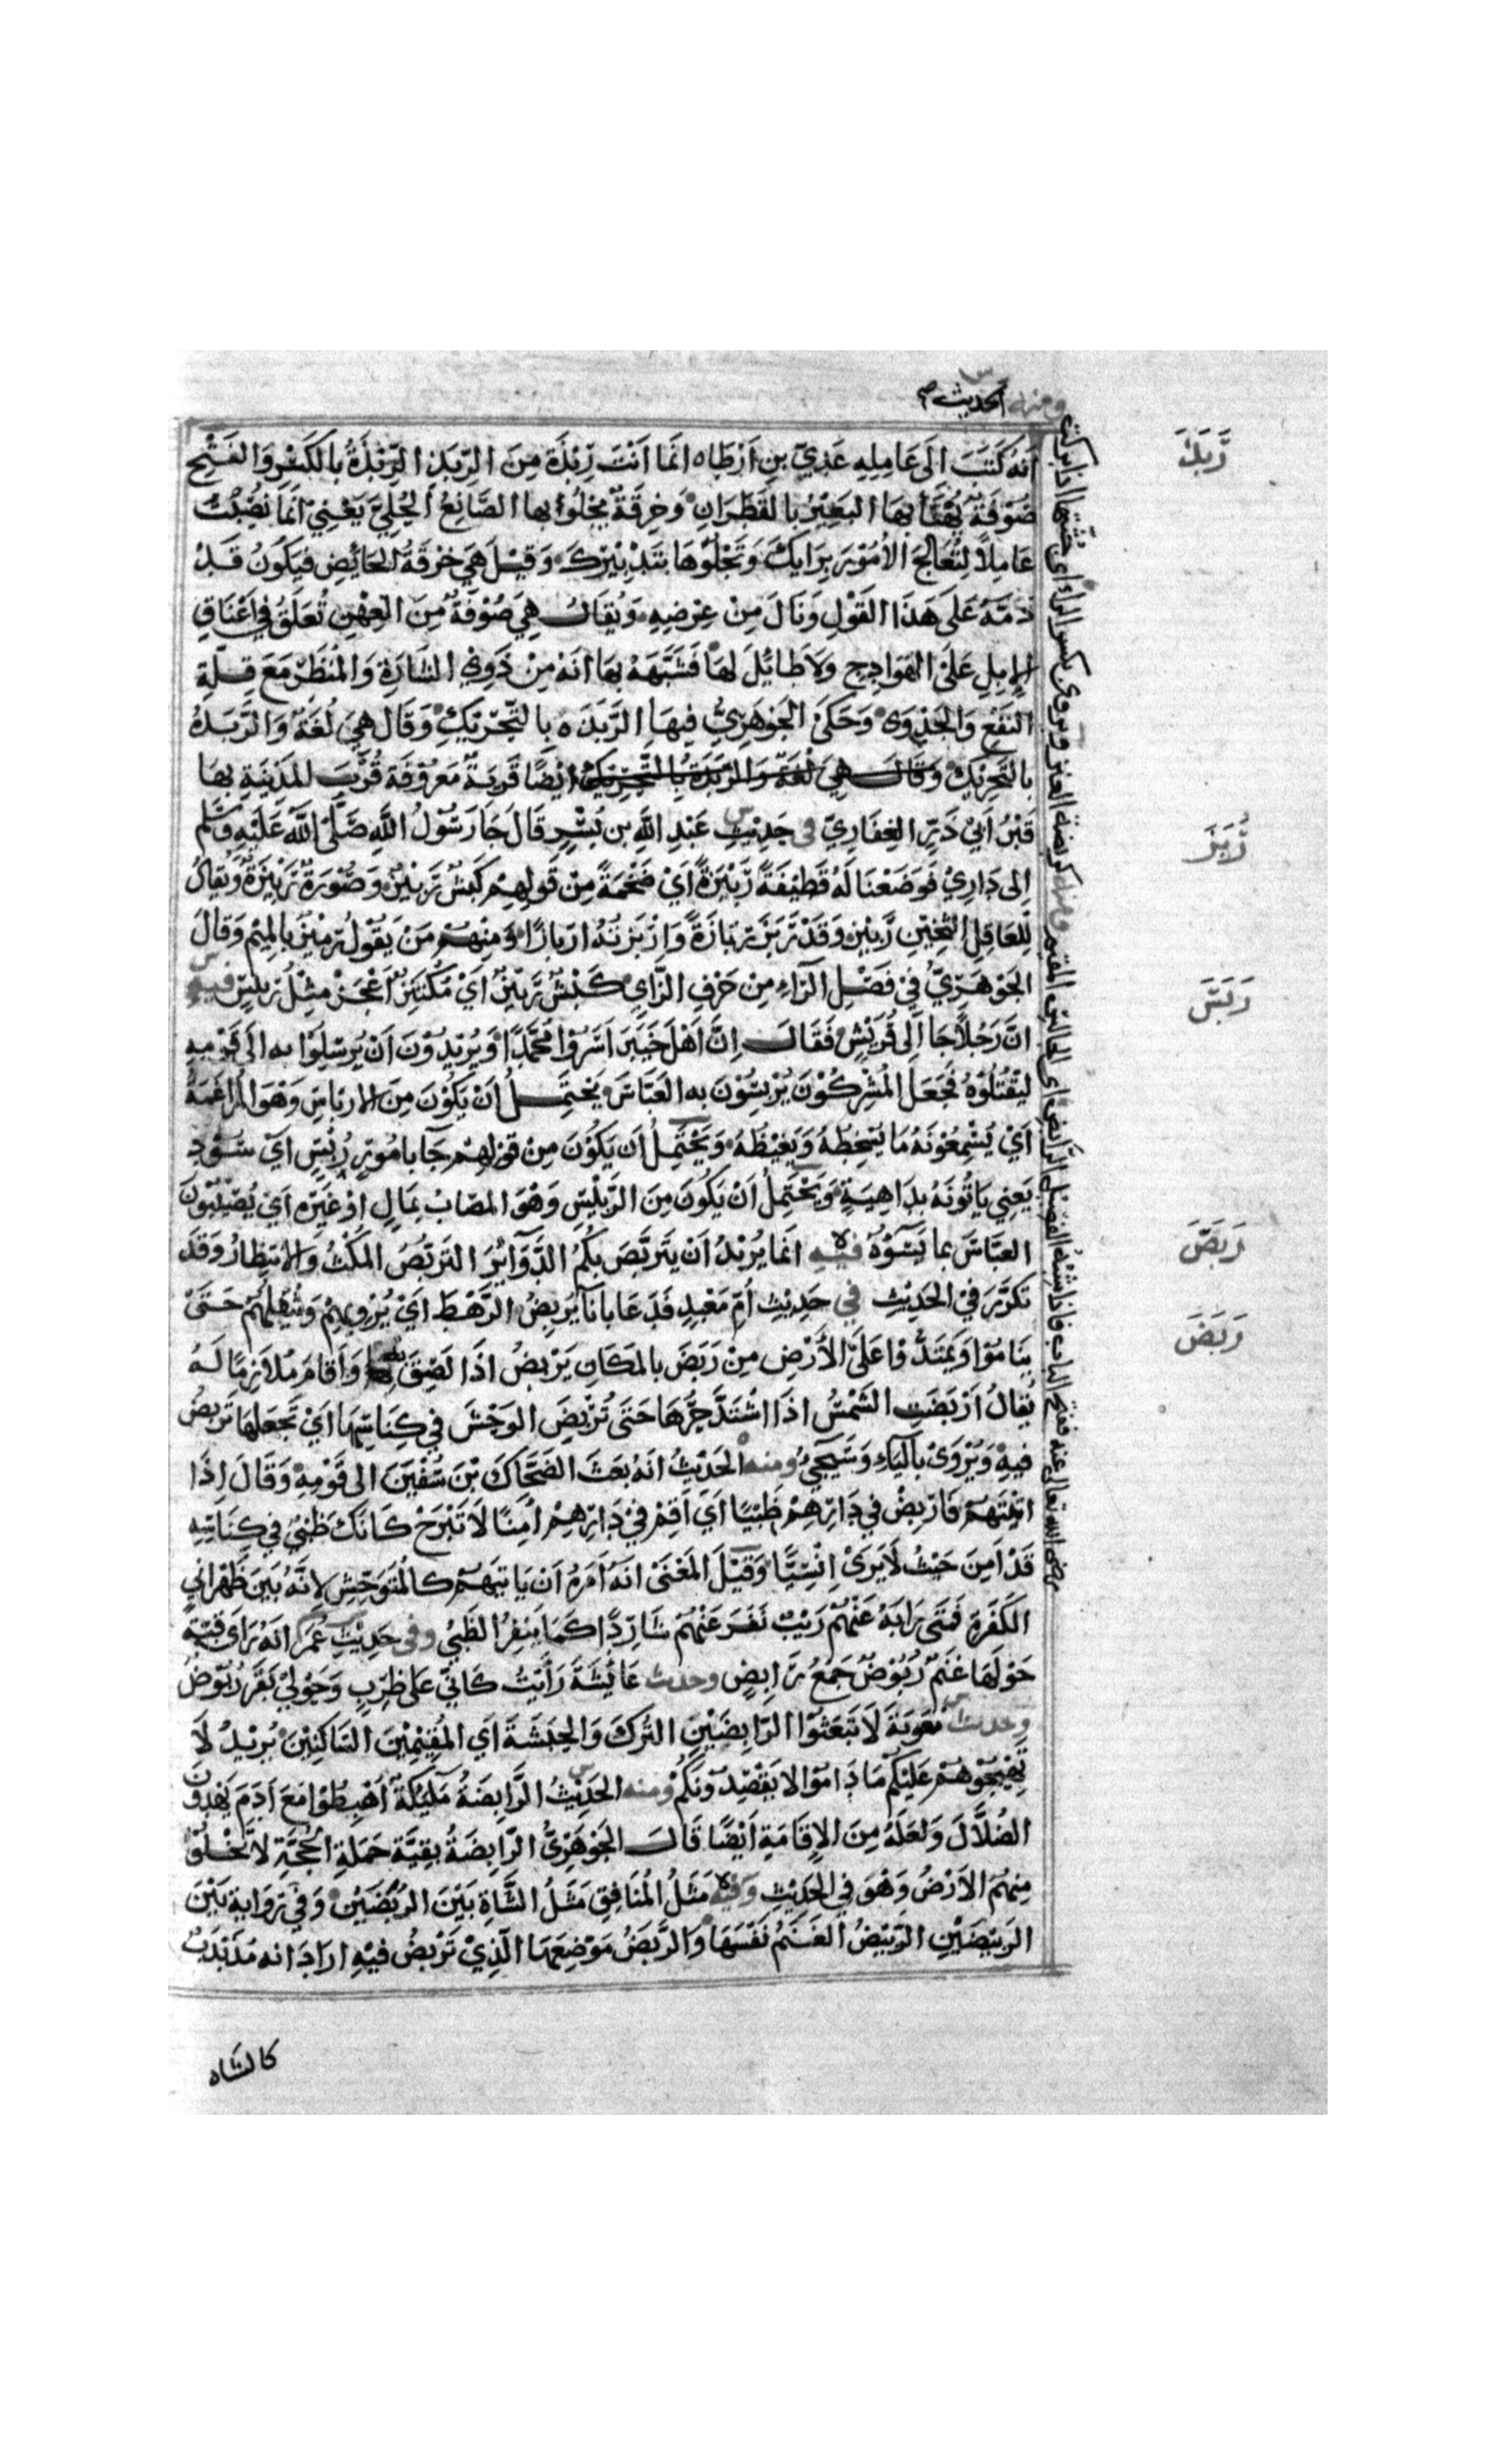 ومنه الحديث
أنه كَتَبَ الَى عَامِلِهِ عَدِيِّ بنِ اَرْطَاه انّمَا اَنْتَ رِبْذَة مِنَ الرِّبَذِ الرِّبْذَةُ بالكَسْرِ وَالفَتْحِ
صُوْفَةٌ يُهْنَأُ بِهَا البَعِيْرُ بالقَطِرَانِ وَخِرقَةٌ يَجْلُوْا بها الصَّائِغُ الحُلِيَّ يَعْنِيْ انّما نُصِبْتَ
عَامِلاً لِتُعَالِجَ الاُمُوْرَ بِرَايِكَ وَتَجْلُوْهَا بتَدْبِيْرِكَ وَقِيْلَ هِيَ خِرْقَةُ الحَائِضِ فَيَكُونُ قَدْ
ذَمّهُ عَلَى هَذَا القَوْلِ وَنَالَ مِنْ عِرْضِهِ وَيُقَالُ هِيَ صُوْفَةٌ مِنَ العِهْنِ تُعَلَّقُ فِي اَعْنَاقِ
الاِبِلِ عَلَى الهَوَادِجِ وَلاَ طَائِلَ لهَا فَشَبَّهَهُ بهَا انّهُ مِنْ ذَوِي الشَّارَةِ وَالمَنْظَرِ مَعَ قِلَّةِ
النَفْعِ وَالجَدْوَى وَحَكَى الجَوْهَرِيُّ فِيهَا الرَّبَذَه بالتّحْرِيْكِ وَقَالَ هِيَ لُغَةٌ وَالرَّبَذَهُ
بالتَّحْرِيْكِ وَقَالَ هِيَ لُغَةٌ وَالرَّبَذَةُ بِالتَّحْرِيْكِ ايْضًا قَرْيَةٌ مَعْرُوْفَة قُرْبَ المَدِيْنَةِ بهَا
قَبْرُ اَبِيْ ذَرِّ الغِفَارِيِّ في حَدِيْثِ عَبْدِ اللّهِ بن بُسْرٍ قَالَ جَا رَسُوْلُ اللّهِ صَلّى اللّهُ عَلَيْهِ وَسَلّم
اِلى دَارِيْ فَوَضَعْنَا لَهُ قَطِيْفَةً رَبِيْزَةً اَيْ ضَخْمَةً مِنْ قَولِهِمْ كَبْشٌ رَبِيْزٌ وَصُوْرَةٌ رَبِيْزَةٌ وَيُقَالُ
لِلعَاقِلِ الثَّخِيْنِ رَبِيْز وَقَدْ رَبُزَ رَبَازَةً وَاَرْبَزْتُهُ اربَازًا وَمِنْهُمْ مَنْ يَقُوْلُ رَمِيْزٌ بالمِيْمِ وَقَالَ
الجَوْهَرِيُّ فِي فَصْلِ الرَّاءِ مِنْ حَرْفِ الزَّايِ كَبْشٌ رَبِيْزٌ اَيْ مُكْتَنِزٌ اَعْجَزُ مِثْلُ رَبِيْسٍ فيهِ
انَّ رَجُلاً جَا اِلَى قُرَيْشٍ فَقَالَ اِنَّ اَهْلَ خَيْبَرَ اَسَرُوْا مُحَمَّدًا وَيُرِيْدُوْنَ اَنْ يُرْسِلُوْا به اِلَى قَوْمِهِ
لِيَقْتُلُوْهُ فَجَعَلَ المُشْرِكُوْنَ يُرْبِسُوْنَ به العَبَّاسَ يَحْتَمِلُ اَنْ يَكُوْنَ مِنَ الارْبَاسِ وَهْوَ المُرَاغَمَةُ
اَيْ يُسْمِعُوْنَهُ مَا يُسْخِطُهُ وَيَغِيْظُهُ وَيَحْتَمِلُ اَن يَكُوْنَ مِنْ قَوْلِهِمْ جَآ بِاُمُوْرٍ رُبْسٍ اَيْ سُوْدٍ
يَعنِي يَاتُوْنَهُ بدَاهِيَةٍ وَيَحْتَمِلُ اَنْ يَكُونَ مِنَ الرَّبِيْسِ وَهْوَ المصَابُ بمَالٍ اوْ غَيْرِهِ اَيْ يُصِيْبُوْنَ
العبَّاسَ بما يَسُوْؤُهُ فيه انّمَا يُرِيْدُ اَنْ يَتَرَبَّصَ بكُمُ الدَّوَآئِرَ التَرَبّصُ المُكْثُ وَالاِنتِظَارُ وَقَدْ
تَكَرَّرَ فِيْ الحَدِيْثِ في حَدِيْثِ اُمِّ مَعْبَدٍ فَدَعَا بانَآ يُرْبِضُ الرّهْطَ اَيْ يُرْوِيْهِمْ وَيُثْقِلُهُمْ حَتَّىْ
يَنَامُوْا وَيَمْتَدُّوْا عَلَى الاَرْضِ مِنْ رَبَضَ بالمكَانِ يَرْبِضُ اذَا لَصِقَ به وَاَقَامَ مُلاَزِمًا لَهُ
يُقَالُ اَرْبَضَتِ الشَّمْسُ اذَا اشْتَدَّ حَرُّهَا حَتَى تُرْبِضَ الوَحْشَ فِي كِنَاسِهَا اَيْ تَجْعَلهَا تَرْبِضُ
فيهِ وَيُرْوَىْ بالْيَاءِ وَسَيَجِيُ ومنه الحَدِيْثُ انّهُ بعَثَ الضَحَّاكَ بْنَ سُفْيَنَ الى قَوْمِهِ وَقَالَ اِذَا
اتَيْتَهُمْ فَارْبِضْ فِي دَارِهِمْ ظَبْيًا اَيْ اَقِمْ فِيْ دَارِهِمْ اٰمِنًا لاَ تَبْرَحْ كَانّكَ ظَبْيٌ فِي كِنَاسِهِ
قَدْ اَمِنَ حَيْثُ لاَ يَرَىْ اِنْسِيًّا وَقِيْلَ المَعْنَىْ انّهُ اَمَرَهُ اَنْ يَاتِيَهُمْ كَالمُتَوَحِّشِ لانَّهُ بَيْنَ ظَهْرَانَيِ
الكَفَرَةِ فَمَتَى رَابَهُ مِنْهُمْ رَيْبٌ نَفَرَ عَنْهُمْ شَارِدًا كَمَا يَنْفِرُ الظَبْيُ وفي حَدِيْثِ عُمَرَ انّهُ رَاَى قُبَّةً
حَوْلَهَا غَنَمٌ رُبُوْضٌ جَمْعُ رَابِضٍ وحديث عَائِشَةَ رَأَيْتُ كَانّيْ عَلَى ظَرِبٍ وَحَوْلِيْ بَقَرٌ رُبُوْضٌ
وحديث مُعٰوِيَةَ لاَ تَبْعَثُوْا الرَّابِضَيْنِ التُّرْكَ وَالحَبَشَةَ اَي المُقِيْمَيْنِ السَّاكِنَيْنِ يُرِيْدُ لاَ
تُهَيِّجُوْهُمْ عَلَيْكُمْ مَا دَامُوْا لا يَقْصِدُوْنَكُمْ ومنه الحَدِيْثُ الرَّابِضَةُ مَلَئِكَةٌ اُهْبِطُوْا مَعَ اٰدَمَ يَهْدُوْنَ
الضُلَّالَ وَلَعَلّهُ مِنَ الاِقَامَةِ اَيْضًا قَالَ الجَوْهَرِيُّ الرَّابِضَةُ بقِيَّة حَمَلةِ الحُجَّةِ لاَ تَخْلُوْا
مِنهُمُ الاَرْضُ وَهْوَ فِي الحَدِيْثِ وَفيه مَثَلُ المُنَافِقِ مَثَلُ الشَّاةِ بَيْنَ الرَبَضَيْنِ وَفِيْ رِوَايةٍ بَيْنَ
الرَبِيْضَيْنِ الرَّبِيْضُ الغَنَمُ نَفْسُهَا وَالرَّبَضُ مَوْضِعهَا الَّذِيْ تَرْبِضُ فِيْهِ ارَادَ انه مُذَبْذَبٌ
كالشاه
رَبَذَ
رَبَزَ
رَبَسَ
رَبَصَ
رَبَضَ